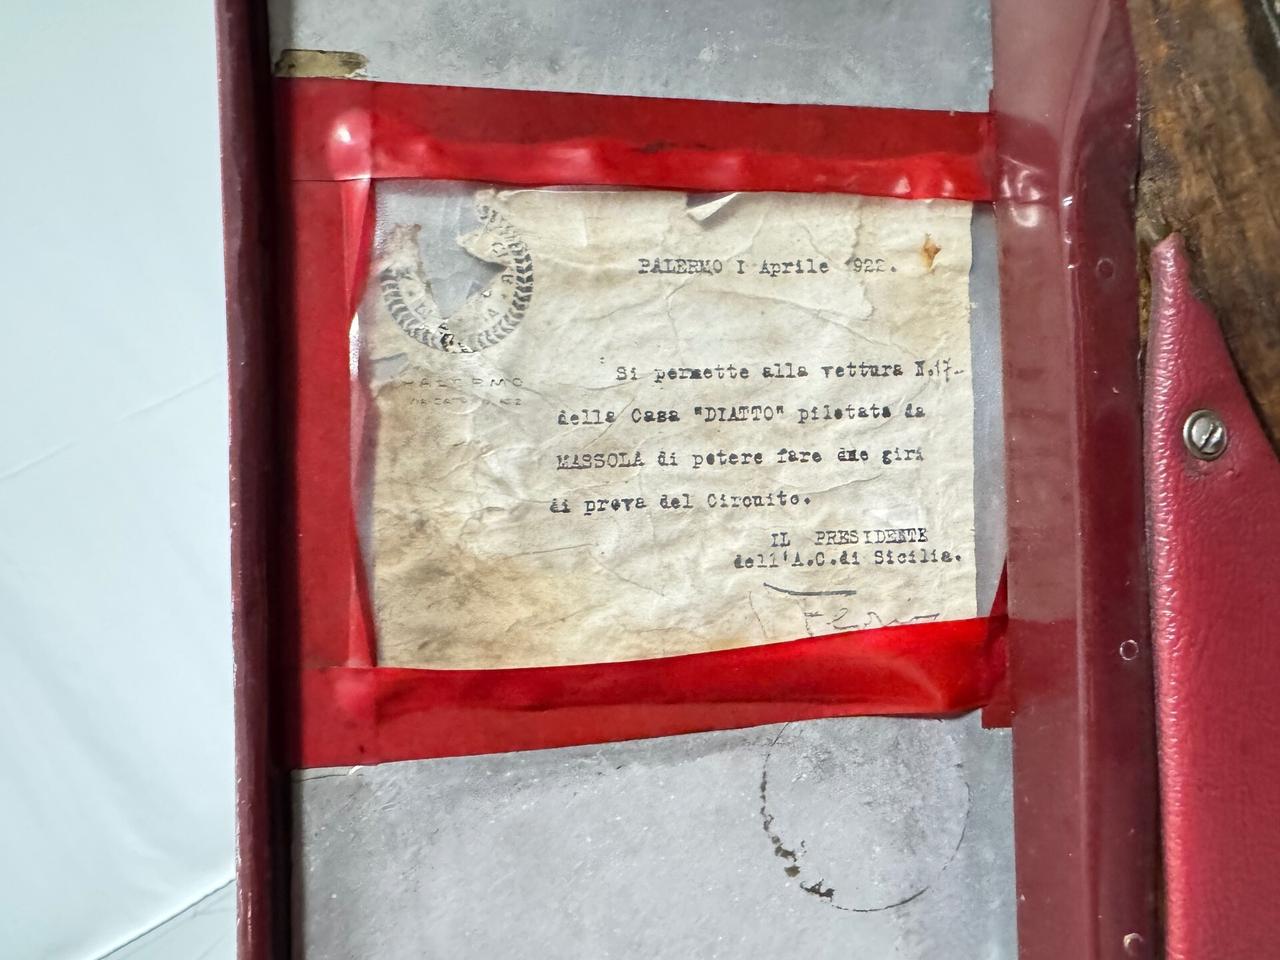 PALERMO I Aprile 1922.
PALERMO
Si permette alla vettura N.17-
della Casa "DIATTO" pilotata da
MASSOLA di potere fare due giri
di prova del Circuito.
IL PRESIDENTE
dell'A.C.di Sicilia.